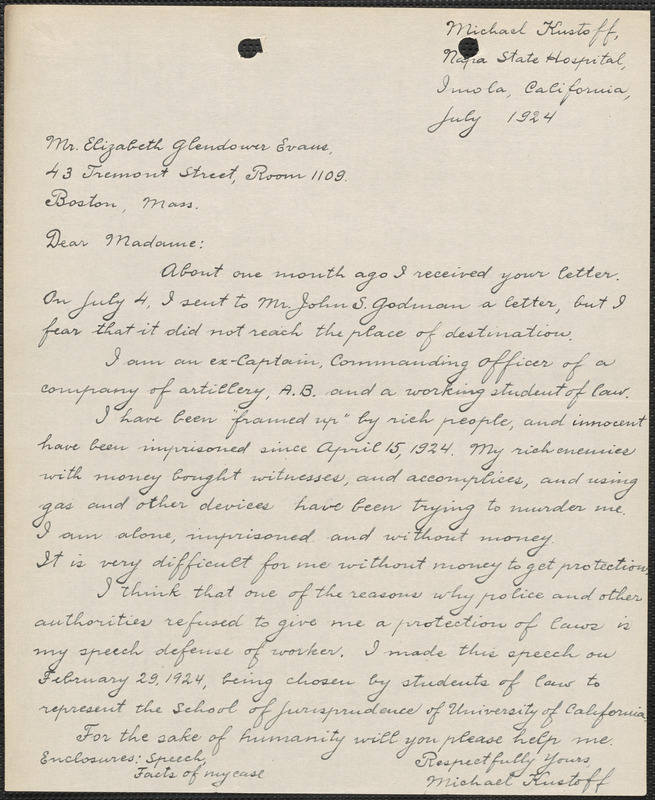 Michael Kustoff,
Napa State Hospital,
Imola, California,
July 1924
Mr. Elizabeth Glendower Evans,
43 Tremont Street, Room 1109.
Boston, Mass.
Dear Madame:
About one month ago I received your letter.
On July 4, I sent to Mr. John S. Godman a letter, but I
fear that it did not reach the place of destination.
I am an ex-Captain, Commanding Officer of a
company of artillery, A.B. and a working student of law.
I have been "framed up" by rich people, and innocent
have been imprisoned since April 15, 1924. My rich enemies
with money bought witnesses, and accomplices, and using
gas and other devices have been trying to murder me.
I am alone, imprisoned and without money.
It is very difficult for me without money to get protection.
I think that one of the reasons why police and other
authorities refused to give me a protection of laws is
my speech defense of worker. I made this speech on
February 29, 1924, being chosen by students of law to
represent the School of Jurisprudence of University of California.
For the sake of humanity will you please help me.
Enclosures: Speech,
Facts of my case
Respectfully Yours
Michael Kustoff